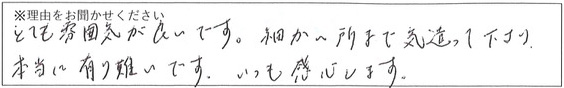 ※理由をお聞かせください
とても雰囲気が良いです。細かい所まで気遣って下さり、
本当に有り難いです。いつも感心します。